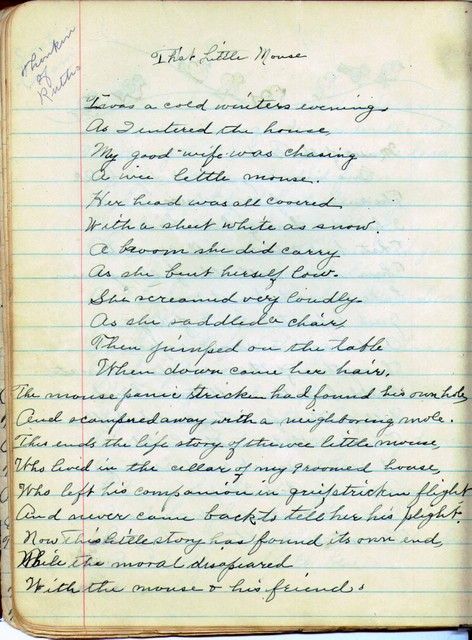 Thinkin
of
Ruth
The Little Mouse
Twas a cold winters evening.
As I entered the house,
My good wife was chasing
A wee little mouse.
Her head was all covered
With a sheet white as snow.
A broom she did carry
As she bent herself low.
She screamed very loudly
As she saddled a chair,
Then jumped on the table
When down came her hair,
The mouse panic stricken had found his own hole,
And scampered away with a neighboring mole.
This ends the life story of the wee little mouse,
Who lived in the cellar of my groomed house,
Who left his companion in griefstricken flight
And never came back to tell her his plight.
Now This little story has found its own end,
While the moral disapeared
With the mouse & his friend.